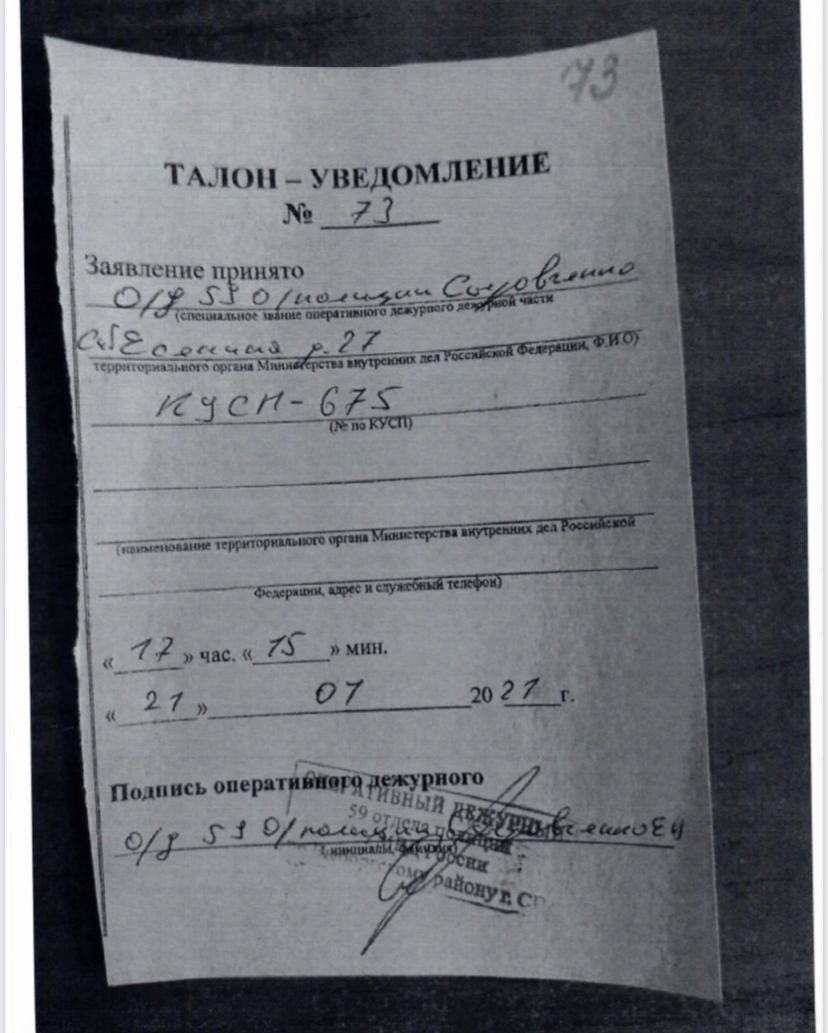 73
ТАЛОН – УВЕДОМЛЕНИЕ
№ 73
Заявление принято
О/д 59 О/полиции
(специальное звание оперативного дежурного дежурной части
р. 27
территориального органа Министерства внутренних дел Российской Федерации, Ф.И.О)
КУСП-675
(№ по КУСП)
(наименование территориального органа Министерства внутренних дел Российской
Федерации, адрес и служебный телефон)
« 17 » час. « 15 » мин.
« 21 » 01 20 21 г.
Подпись оперативного дежурного
ОПЕРАТИВНЫЙ ДЕЖУРНЫЙ
59 отдела полиции
О/д 59 О/полиции
России
району г. С